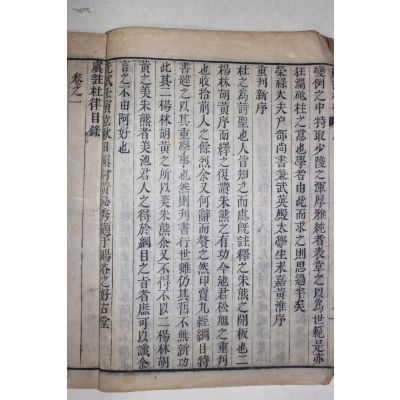 變例之中特取少陵之渾厚雅純者表章之以爲世範是亦
狂瀾砥柱之意也學者由此而求之則思過半矣
榮祿大夫戶部尚書兼武英殿大學士永嘉黃淮序
重刊新序
杜之爲詩聖也人皆知之而虞旣註釋之朱熊之開板也二
楊林胡黃序而繹之復讚朱熊之有功今池君松旭之重刊
也收拾前人之餘烈余又何辭而贅之然印賣九經綱目特
書雖之以其重學事也然則刋書行世雖仍其舊不無新功
此其二楊林胡黃之所以美朱熊余又不得不以二楊林胡
黃之美朱熊者美池君人之得於綱目之旨者庶可以識余
言之不由阿好也
卷之一
虞註杜律目錄